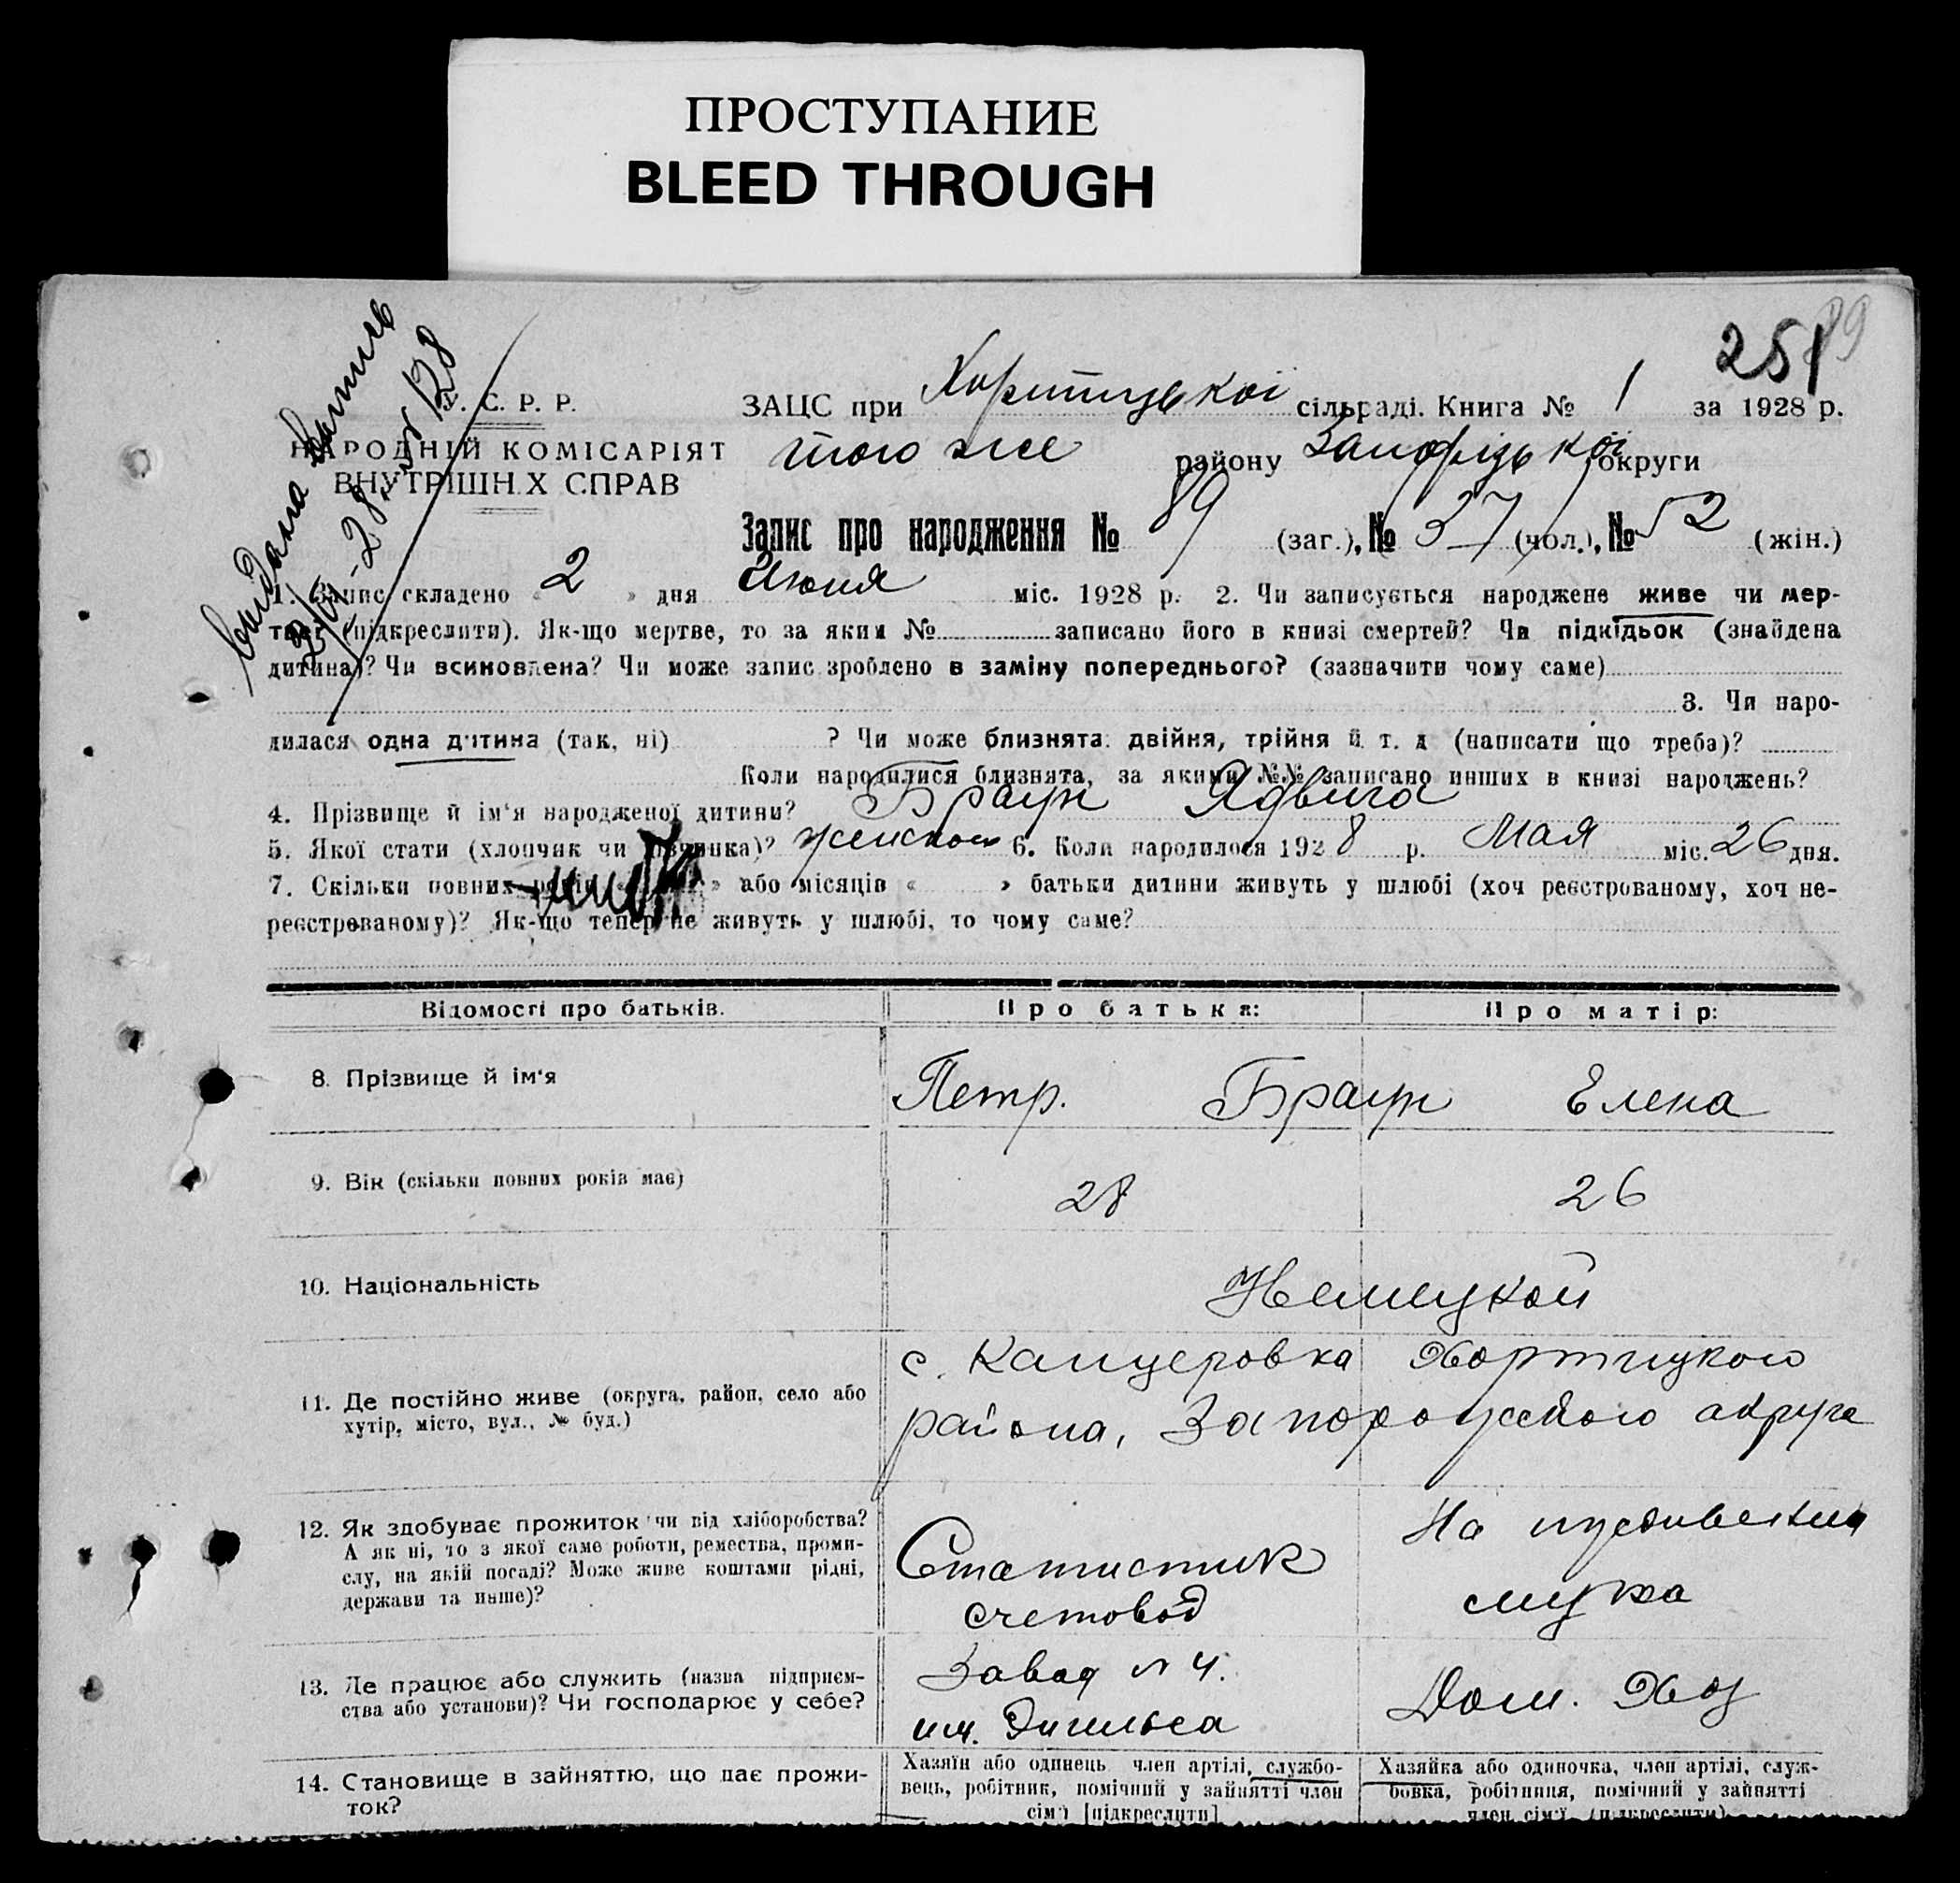 ПРОСТУПАНИЕ
BLEED THROUGH
251
89
Видана выпись
2/VI-28
С. Р. Р.
НАРОДНІЙ КОМІСАРІЯТ
ВНУТРІШН.Х СПРАВ
ЗАЦС при Хортицької сільраді. Книга № 1 за 1928 р.
того же району Запорізької округи
Запис про народження № 89 (заг.), № 37 (чол.), № 52 (жін.)
1. Запис складено « 2 » дня Июня міс. 1928 р. 2. Чи записується народжене живе чи мер-
тве (підкреслити). Як-що мертве, то за яким № записано його в книзі смертей? Чи підкідьок (знайдена
дитина)? Чи всиновлена? Чи може запис зроблено в заміну попереднього? (зазначити чому саме)
3. Чи наро-
дилася одна дитина (так, ні) ? Чи може близнята: двійня, трійня й т. д (написати що треба)?
Коли народилися близнята, за якими №№ записано инших в книзі народжень?
4. Прізвище й ім'я народженої дитини? Браун Ядвига
5. Якої стати (хлопчик чи дівчинка)? женской 6. Коли народилося 1928 р. Мая міс. 26 дня.
7. Скільки повних років « » або місяців « » батьки дитини живуть у шлюбі (хоч реєстрованому, хоч не-
реєстрованому)? Як-що тепер не живуть у шлюбі, то чому саме?
Відомості про батьків. Про батька: Про матір:
8. Прізвище й ім'я Петр. Браун Елена
9. Вік (скільки повних років має) 28 26
10. Національність Немецкой
11. Де постійно живе (округа, район, село або
хутір, місто, вул., № буд.)
с. Канцеровка Хортицкого
района, Запорожского округа
12. Як здобуває прожиток чи від хліборобства?
А як ні, то з якої саме роботи, ремества, проми-
слу, на якій посаді? Може живе коштами рідні,
держави та инше)?
Статистик
счетовод
На иждивении
мужа
13. Де працює або служить (назва підприєм-
ства або установи)? Чи господарює у себе?
Завод № 4.
им. Энгельса
Дом. Хоз
14. Становище в зайняттю, що дає прожи-
ток?
Хазяїн або одинець член артілі, службо-
вець, робітник, помічний у зайнятті член
сім'ї [підкреслити]
Хазяйка або одиночка, член артілі, служ-
бовка, робітниця, помічний у зайнятті
член сім'ї (підкреслити)